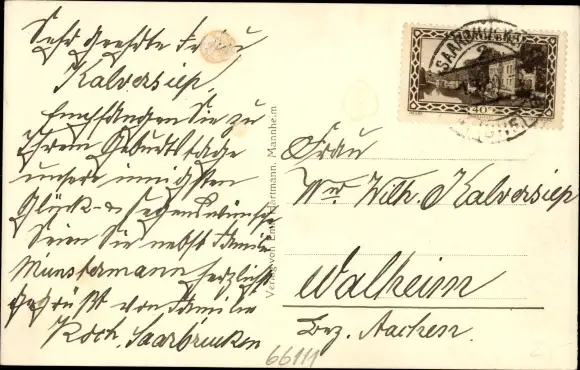 Sehr geehrte Frau
Kalversiep,
Empfangen Sie zu
Ihrem Geburtstage
unsere innigsten
Glück- & Segenswünsche.
Seien Sie nebst Familie
Münstermann herzlichst
gegrüßt von Familie
Koch, Saarbrücken
Verlag von Emil Hartmann, Mannheim
SAARBRÜCKEN
40
Frau
Wwe Wilh. Kalversiep
Walheim
Bez. Aachen.
66111